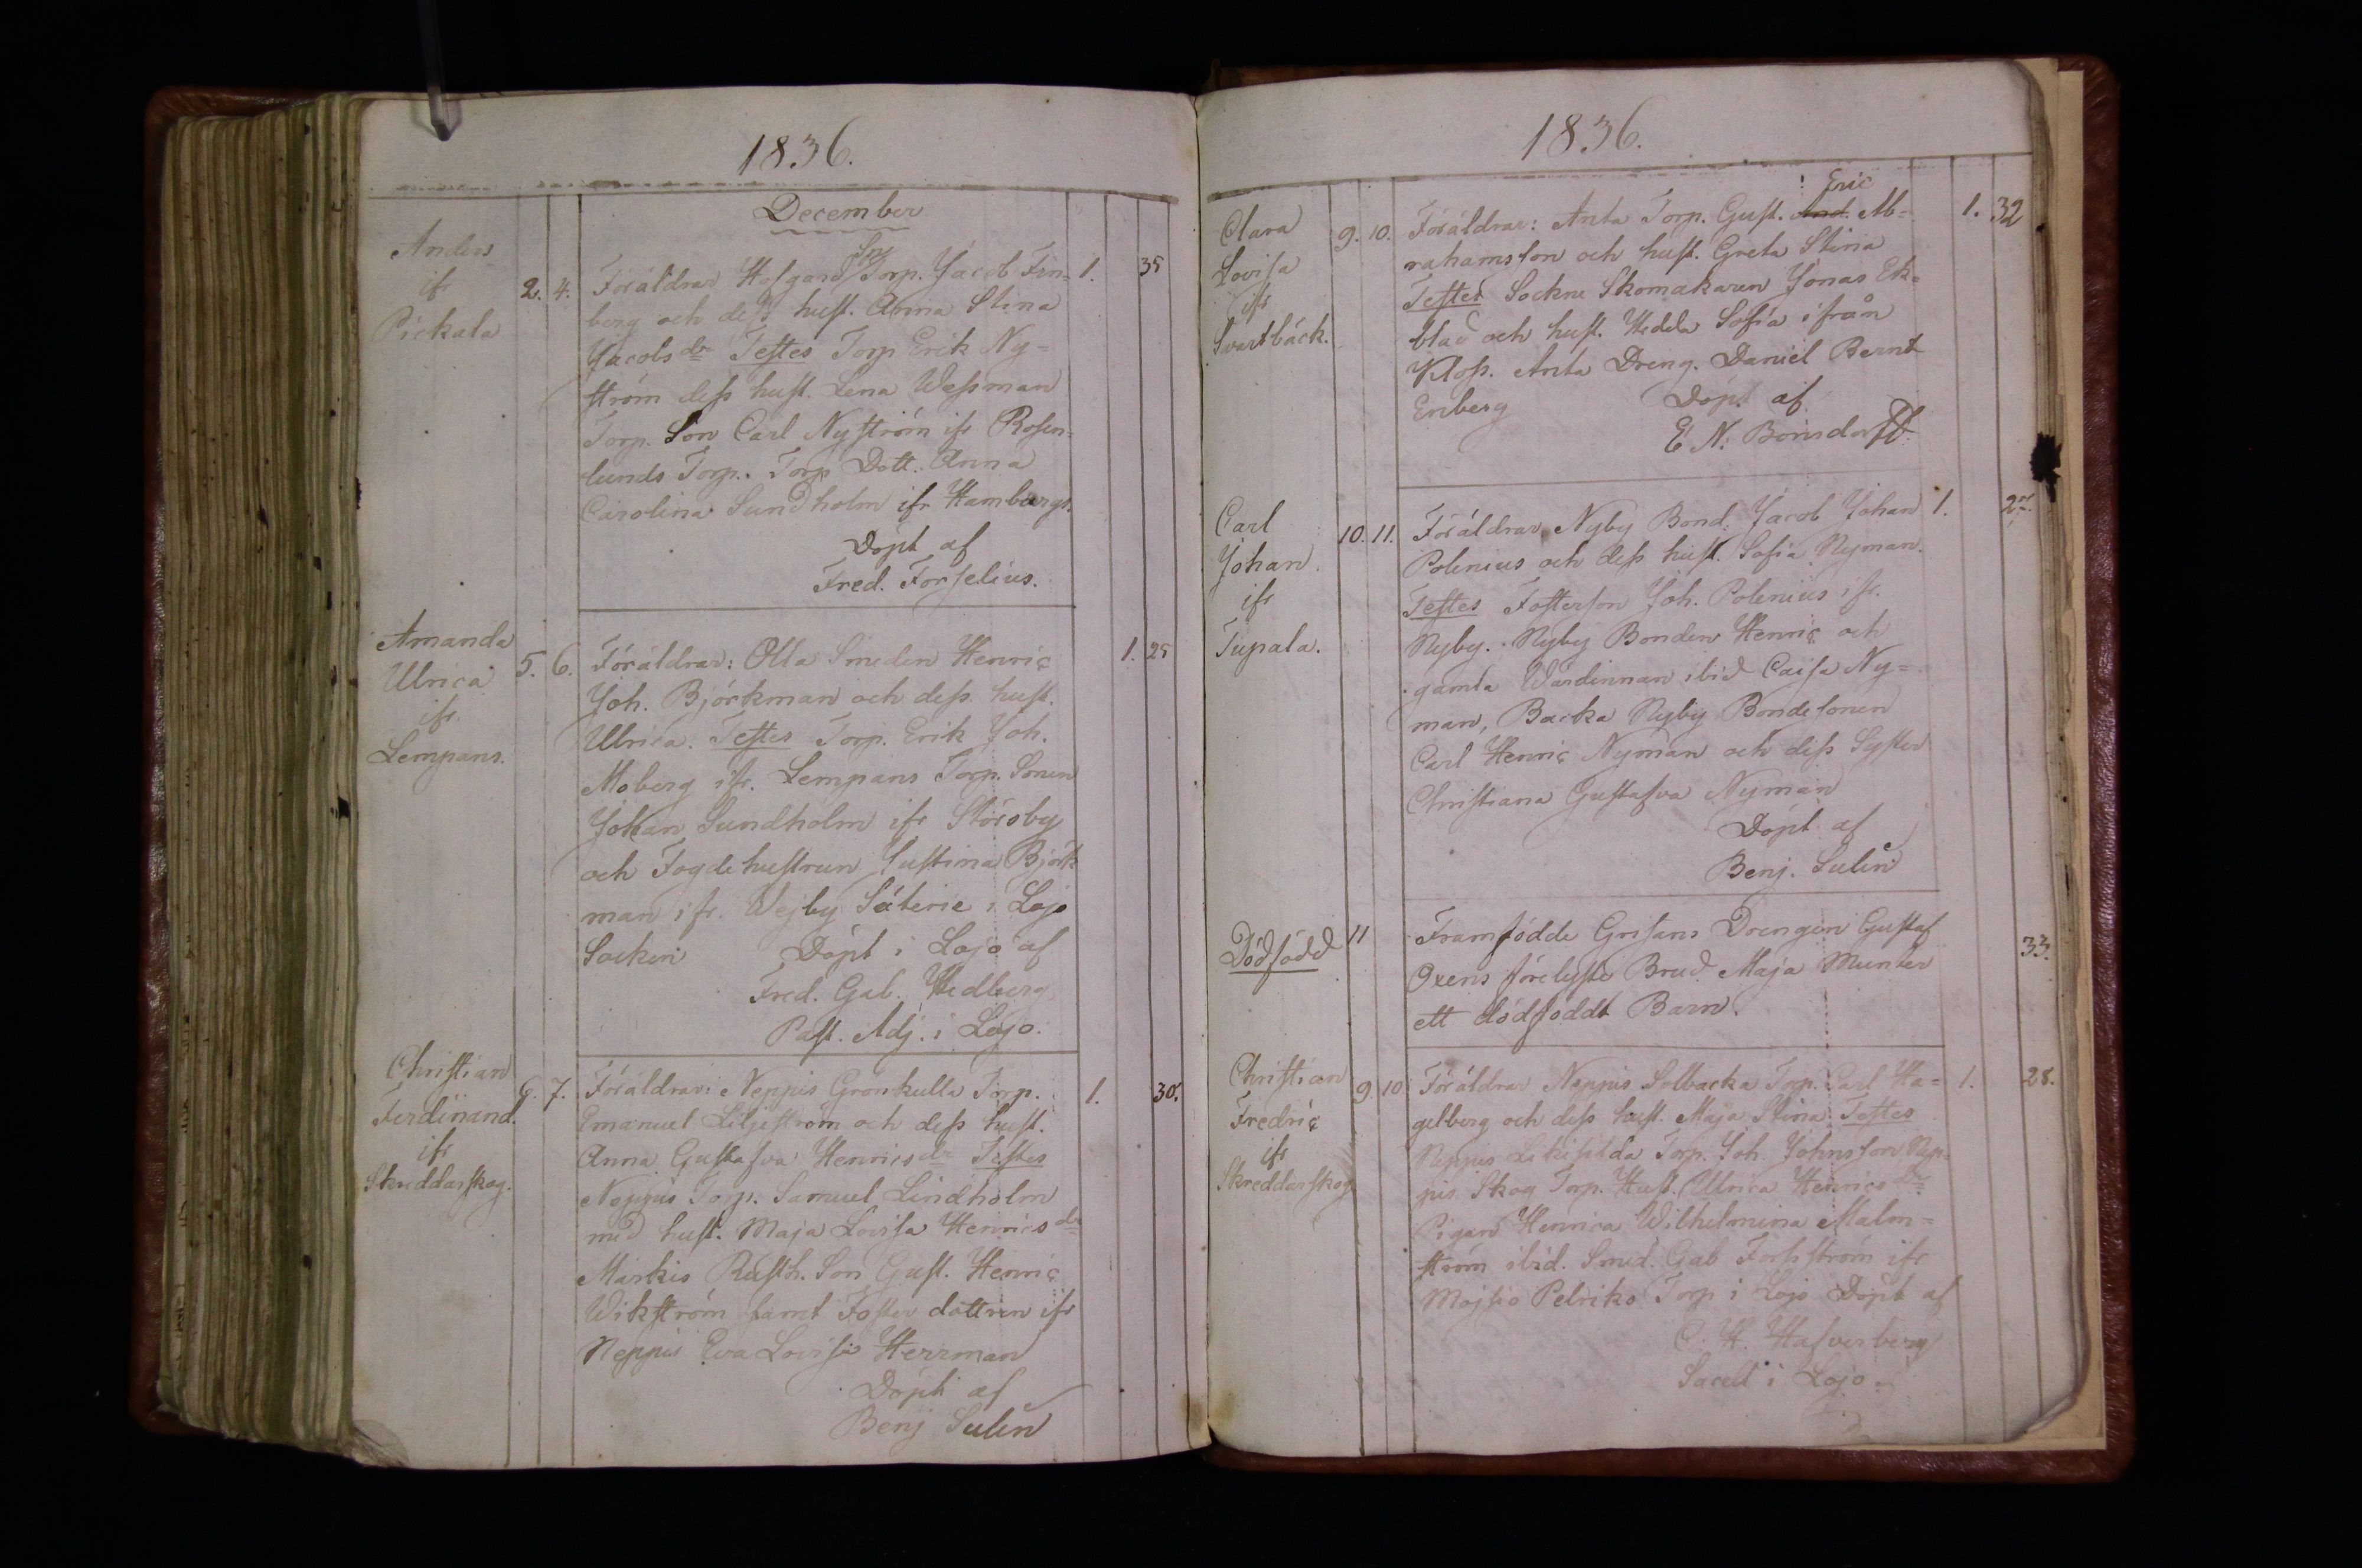 1836.
December
Anders
ifr
Pickala
2. 4.
Föräldrar Hofgård Torp. Jacob Fin=
berg och dess hust. Anna Stina
Jacobsdr Testes Torp Erik Ny=
ström dess hust. Lena Wessman
Torp. Son Carl Nyström ifr Rosen=
lunds Torp. Torp Dott. Anna
Carolina Sundholm ifr Hambargs.
Döpt af
Fred. Forselius.
1. 35
Amanda
Ulrica
ifr
Lempans.
5. 6.
Föräldrar: Olla Smeden Henric
Joh. Björkman och dess hust.
Ulrica. Testes Torp. Erik Joh.
Moberg ifr. Lempans Torp. Sonen
Johan Sundholm ifr Störsby
och Fogdehustrun Justina Björk
man ifr. Wejby Säterie i Lojo
Socken Döpt i Lojo af
Fred. Gab. Hedberg
Past. Adj. i Lojo.
1. 25
Christian
Ferdinand.
ifr
Skreddarskog.
6. 7.
Föräldrar: Neppis Grönkulla Torp.
Emanuel Liljeström och dess hust.
Anna Gustafva Henricsdr Testes
Neppis Torp. Samuel Lindholm
med hust. Maja Lovisa Henricsdr
Markis Rusth. Son Gust. Henric
Wikström samt Foster dottren ifr
Neppis Eva Lovisa Herrman
Döpt af
Benj Sulin
1. 30.
1836.
Clara
Lovisa
ifr
Svartbäck.
9. 10.
Eric
Föräldrar: Anta Torp. Gust. And. Ab=
rahamsson och hust. Greta Stina
Testes Sockne Skomakaren Jonas Ek=
blad och hust. Hedda Sofia ifrån
Kloss. Anta Dreng. Daniel Bernt
Enberg Döpt af
E N. Bonsdorff.
1. 32
Carl
Johan
ifr
Tupala.
10. 11.
Föräldrar Nyby Bond. Jacob Johan
Polenius och dess hust. Sofia Nyman.
Testes Fosterson Joh. Polenius ifr.
Nyby. Nyby Bonden Henric och
gamla Värdinnan ibid Caisa Ny=
man, Backa Nyby Bondesonen
Carl Henric Nyman och dess Syster
Christiana Gustafva Nyman
Döpt af
Benj. Sulin
1.
Dödfödd
11
Framfödde Grisans Drengen Gustaf
Oxens förelyste Brud Maja Munter
ett dödföddt Barn.
33.
Christian
Fredric
ifr
Skreddarskog
9. 10
Föräldrar Neppis Solbacka Torp. Carl Ha=
gelberg och dess hust. Maja Stina. Testes
Neppis Torp. Joh. Johnsson, Nep=
pis Skog Torp. Hust. Ulrica Henricsdr
Pigan Henrica Wilhelmina Malm=
ström ibid. Smed. Gab Forsström ifr
Mojsio Pelriks Torp i Lojo Döpt af
C. H. Hafverberg
Sacell i Lojo.
1. 28.